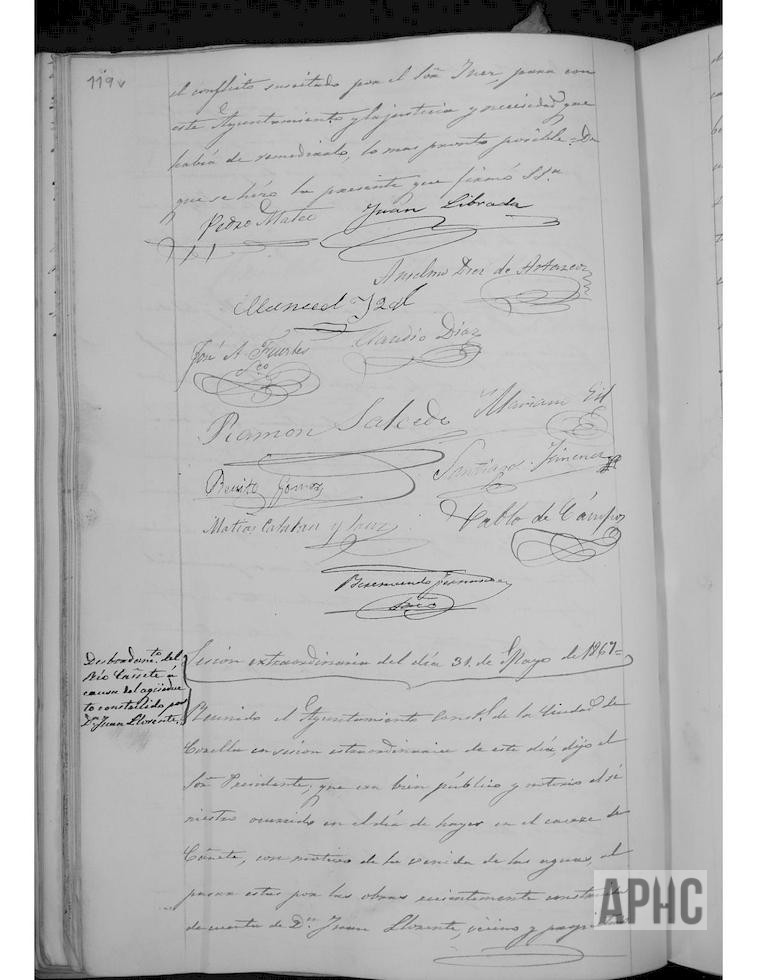 119v
el conflicto suscitado por el Sôr Juez, para con
este Ayuntamiento y la justicia y necesidad que
habia de remediarlo, lo mas pronto posible = De
que se hizo la presente que firmó SSa
Pedro Mateo Juan Librada
Anselmo Diez de
Manuel
José A. Fuertes Claudio Diaz
Sco
Ramon Salcedo Mariano Gil
Benito Gomez Santiago Jimenez
Matias Catalan y Pablo de Campos
Beremundo Fernandez
Srio
Desbordamto. del
Rio Cañete a
causa del agüeduc
to construido por
Dn. Juan Llorente.
Sesion extraordinaria del dia 31. de Mayo de 1867=
Reunido el Ayuntamiento Const.l de la Ciudad de
Corella en sesion extraordinaria de este dia, dijo el
Sôr Presidente; que era bien público y notorio el si
niestro ocurrido en el dia de hayer en el cauce de
Cañete, con motivo de la venida de las aguas, al
pasar estas por las obras recientemente construida
de cuenta de Dn. Juan Llorente, vecino y
APHC